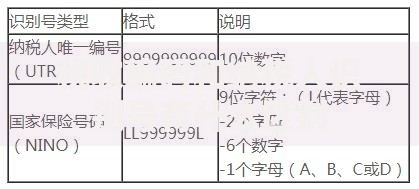 识别号类型 格式 说明
纳税人唯一编号 9999999999 10位数字
（UTR
国家保险号码 LL999999L 9位字符：（L代表字母）
（NINO） -2个字母
-6个数字
-1个字母（A、B、C或D）